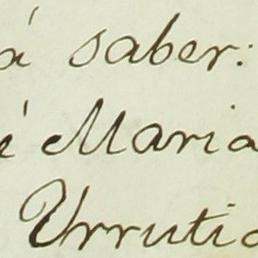 á saber:
é Maria
Urrutia